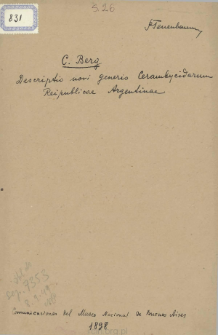 831
5.26
C. Berg
Descriptio novi generis Cerambycidarum
Reipublicae Argentinae
Comunicaciones del Museo Nacional de Buenos Aires
1898